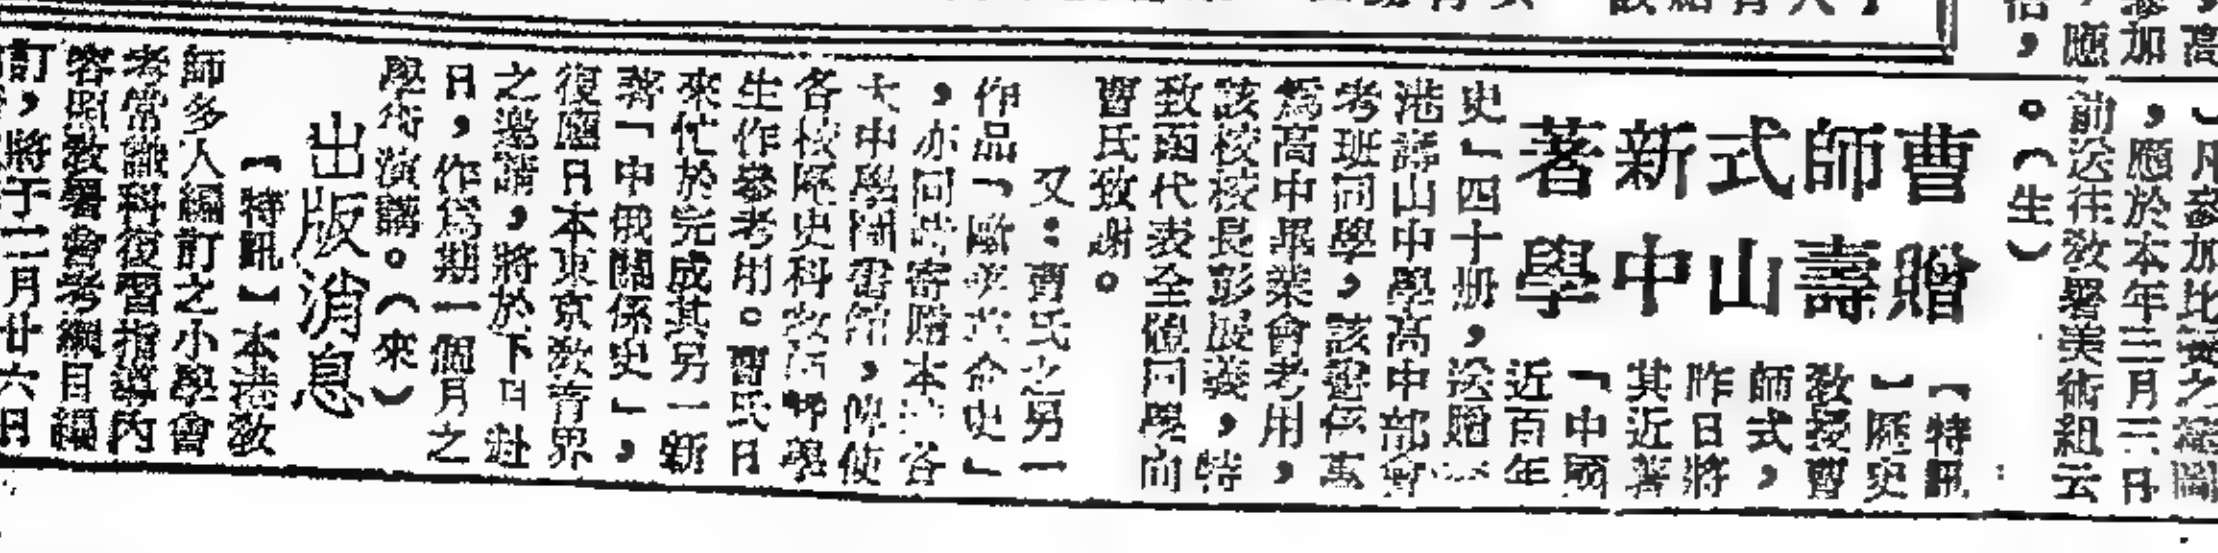 參加
，應
倍，
】凡參加比賽之繪圖
，應於本年三月三日
前送往敎署美術組云
。（生）
曹師式新著
贈壽山中學
【特訊
】歷史
敎授曹
師式，
昨日將
其近著
「中國
近百年
史」四十册，送贈
港壽山中學高中部會
考班同學，該書係專
爲高中畢業會考用，
該校校長彭展義，特
致函代表全體同學向
曹氏致謝。
又：曹氏之另一
作品「歐美文化史」
，亦同時寄贈本港各
大中學圖書館，俾使
各校歷史科敎師師學
生作參考用。曹氏日
來忙於完成其另一新
著「中俄關係史」，
復應日本東京敎育界
之邀請，將於下月赴
日，作爲期一個月之
學術演講。（來）
出版消息
【特訊】本港敎
師多人編訂之小學會
考常識科復習指導內
容照敎署會考綱目編
訂，將于二月廿六日